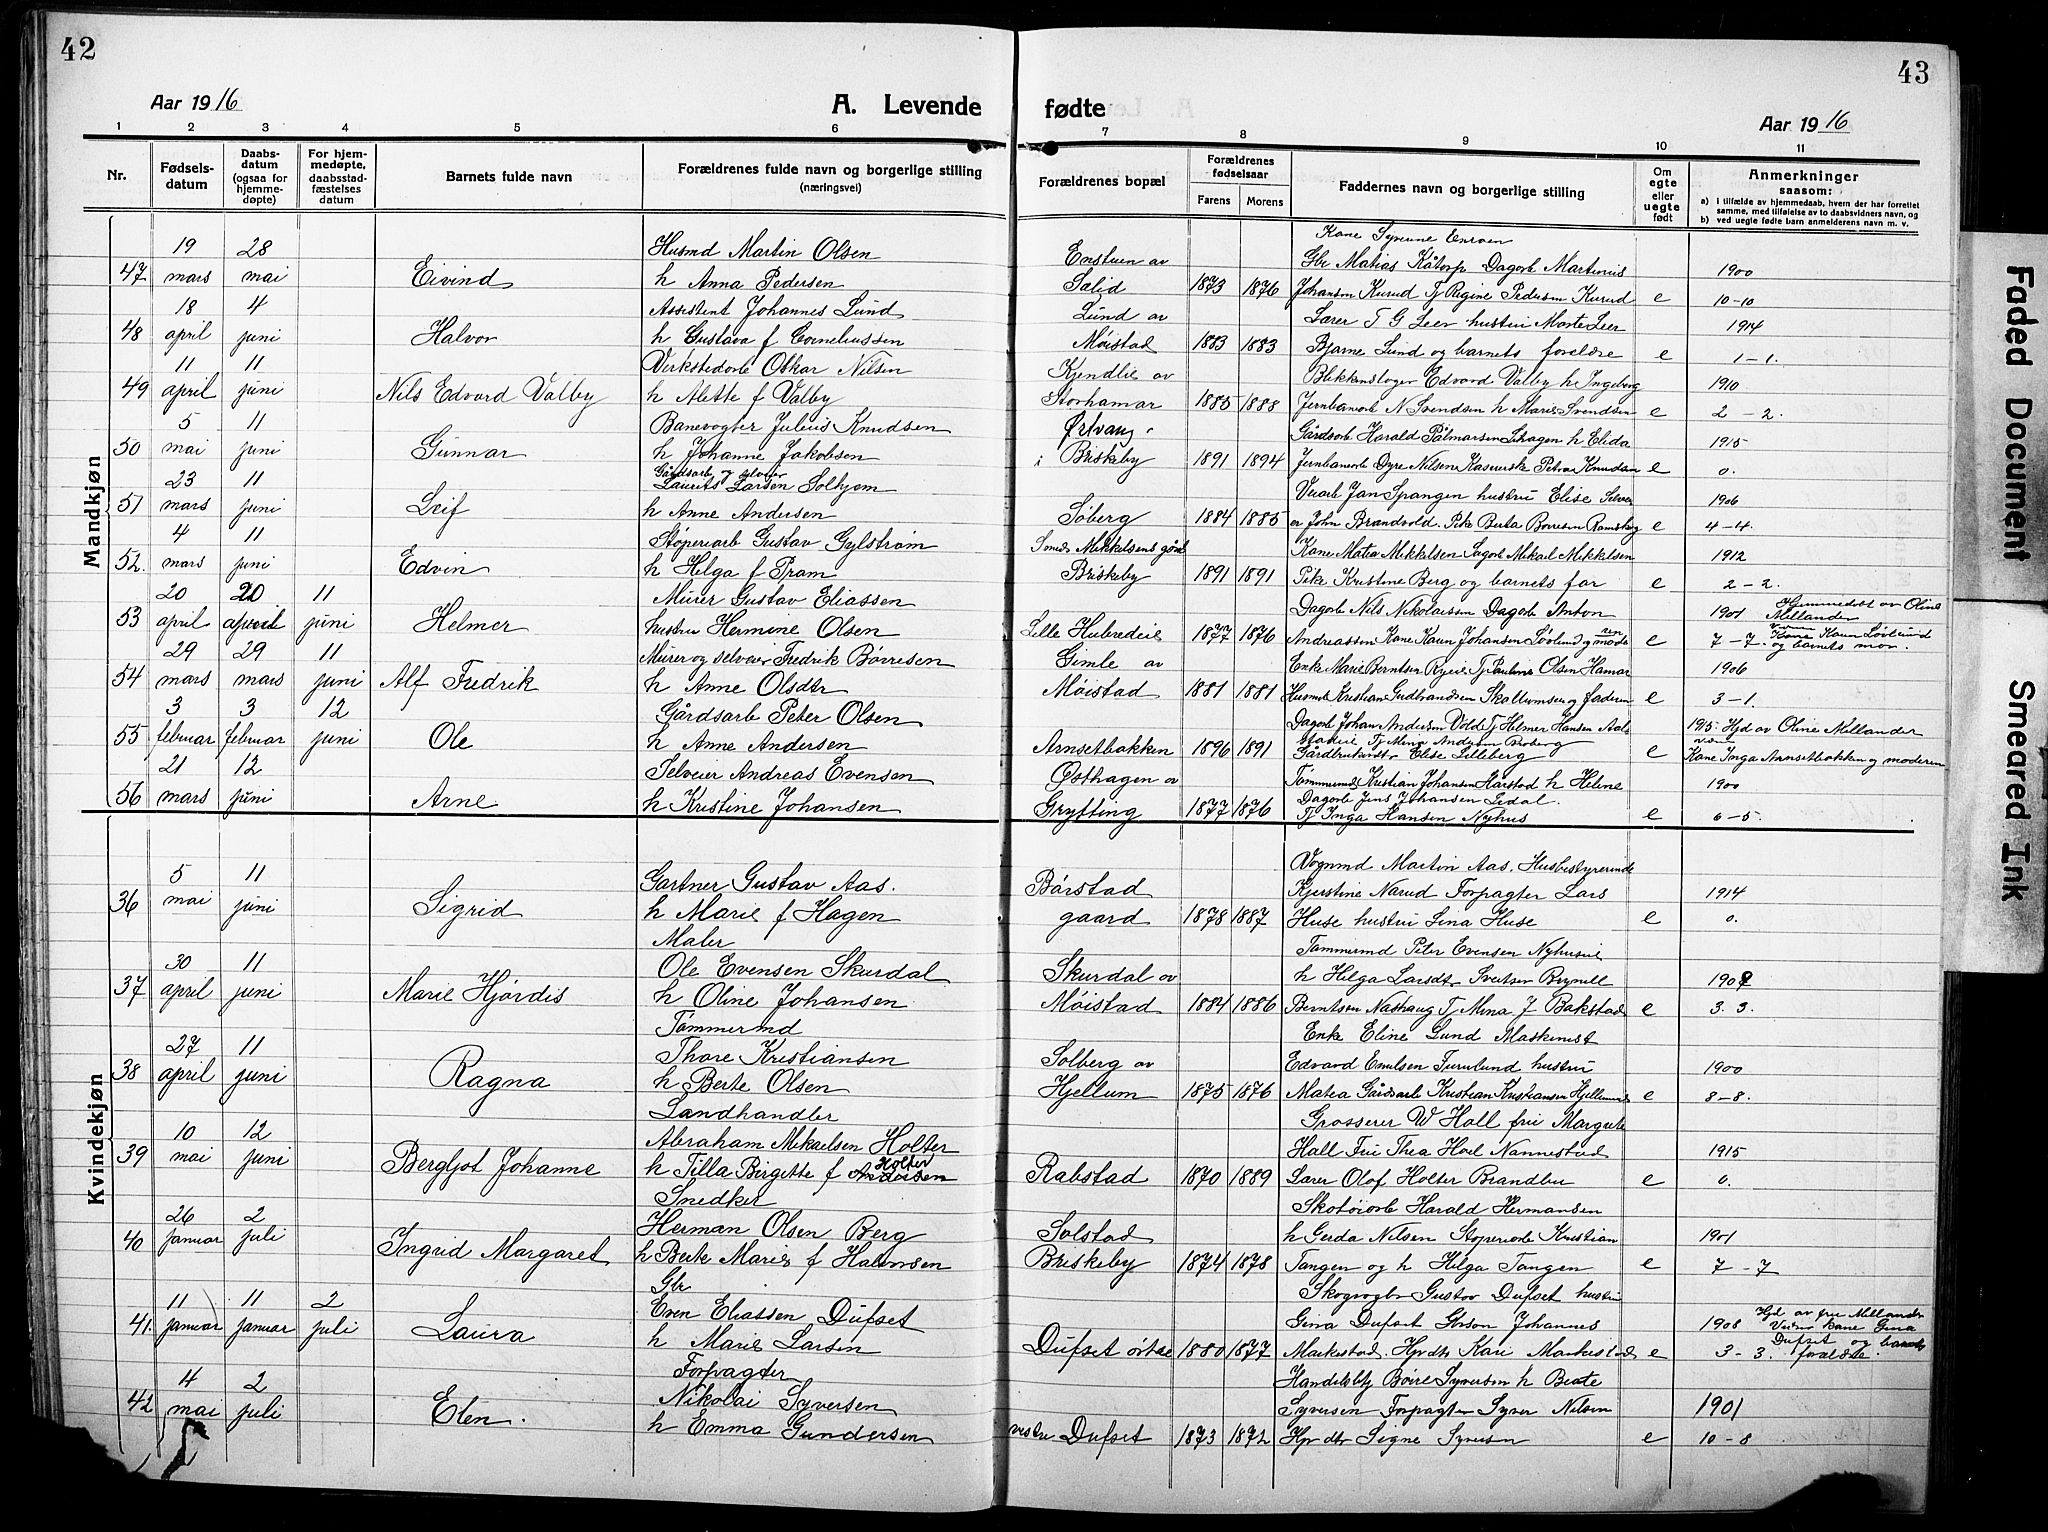 42
Aar 1916
A. Levende
1 2 3 4 5 6
Nr.
Fødsels-
datum
Daabs-
datum
(ogsaa for
hjemme-
døpte)
For hjem-
medøpte,
daabsstad-
fæstelses
datum
Barnets fulde navn
Forældrenes fulde navn og borgerlige stilling
(næringsvei)
Mandkjøn
19 28 Husmd Martin Olsen
47 mars mai Eivind h Anna Pedersen
18 4 Assistent Johannes Lund
48 april juni Halvor h Gustava f Corneliussen
11 11 Verkstedarb Oskar Nilsen
49 april juni Nils Edvard Valby h Alette f Valby
5 11 Banevogter Julius Knudsen
50 mai juni Gunnar h Johanne Jakobsen
23 11 Gårdsarb og selveier
Laurits Larsen Solhjem
51 mars juni Leif h Anne Andersen
4 11 Støperiarb Gustav Gylstrøm
52. mars juni Edvin h Helga f Pram
20 20 11 Murer Gustav Eliassen
53 april april juni Helmer hustru Hermine Olsen
29 29 11 Murer og selveier Fredrik Børresen
54 mars mars juni Alf Fredrik h Anne Olsdtr
3 3 12 Gårdsarb Peter Olsen
55 februar februar juni Ole h Anne Andersen
21 12 Selveier Andreas Evensen
56 mars juni Arne h Kristine Johansen
Kvindekjøn
5 11 Gartner Gustav Aas.
36 mai juni Sigrid h Marie f Hagen
Maler
30 11 Ole Evensen Skurdal
37 april juni Marie Hjørdis h Oline Johansen
Tømmermd
27 11 Thore Kristiansen
38 april juni Ragna h Berte Olsen
Landhandler
10 12 Abraham Mikaelsen Holter
39 mai juni Bergljot Johanne h Tilla Birgitte f Holter
Snedker
26 2 Herman Olsen Berg
40 januar juli Ingrid Margaret h Berte Marie f Halvorsen
Gbr
11 11 2 Even Eliassen Dufset
41. januar januar juli Laura h Marie Larsen
Forpagter
4 2 Nikolai Syversen
42 mai juli Elen. h Emma Gundersen
43
fødte
Aar 1916
7 8 9 10 11
Forældrenes bopæl
Forældrenes
fødselsaar
Farens Morens
Faddernes navn og borgerlige stilling
Om
egte
eller
uegte
født
Anmerkninger
saasom:
a) i tilfælde av hjemmedaab, hvem der har forrettet
samme, med tilføielse av to daabsvidners navn, og
b) ved uegte fødte barn anmelderens navn m. v.
Kone Syverine Enroen
Enstuen av Gbr Matias Kåtorp Dagarb Martinius 1900
Sælid 1873 1876 Johansen Kurud Tj Regine Pedersen Kurud e 10-10
Lund av Lærer T G Leer hustru Marte Leer 1914
Møistad 1883 1883 Bjarne Lund og barnets forelære e 1-1.
Kjendlie av Blikkenslager Edvard Valby h Ingeborg 1910
Storhamar 1885 1888 Jernbanearb N Svendsen h Marie Svendsen e 2-2.
Østvang Gårdsarb Harald Pålmarsen h Elida 1915
i Briskeby 1891 1894 Jernbanearb Dyre Nilsen Petra Knudsen e 0.
Jan Spangen hustru Elise Selvei 1906
Søberg 1884 1885 er John Brandvold. Pike Berta Børresen e 4-4.
Smed Mikkelsens gård Kone Matea Mikkelsen Mikael Mikkelsen 1912
Briskeby 1891 1891 Pike Kristine Berg og barnets far e 2-2.
Dagarb Nils Nikolaisen Dagarb Anton 1901 Hjemmedøpt av Oline
Millander
Lille Hubredeie 1877 1876 Andreassen Kone Kaun Johansen Løvlund og moderen e 7-7. Kone Kaun Løvlund
og barnets mor.
Gimle av Enke Marie Berntsen Ryeie Tj Pauline Olsen Hamar 1906
Møistad 1881 1881 Husmd Kristian Gudbrandsen Skallumsen og faderen e 3-1.
Dagarb Johan Andersen Volde Tj Helmer Hansen Aals 1915. Hjd av Oline Millander
stadeie Tj Mina Andersen Biseberg
Arnsetbakken 1896 1891 Gårdbrukerdtr Elise Lilleberg e Kone Inga Arnsetbakken og moderen
Østhagen av Tømmermd Kristian Johansen Harstad h Helene 1900
Dagarb Jens Johansen Lidal.
Gryfting 1877 1876 Tj Inga Hansen Nyhus e 6-5.
Vognmd Martin Aas. Husbestyrerinde
Børstad Kjerstine Narud Forpagter Lars 1914
gaard 1878 1887 Huse hustru Lina Huse e 0.
Tømmermd Peter Evensen Nyhusie
Skurdal av h Helga Larsdtr Sveitser Brynill
Møistad 1884 1886 Berntsen Nashaug Tj Mina J Bakstad e 3.3.
Enke Eline Lund Maskinist
Solberg av Edvard Emilsen Furulund hustru 1900
Hjellum 1875 1876 Matea Gårdsarb Kristian Kristiansen Hjellumeie e 8-8.
Grosserer W Hall frue Margrete
Hall Fru Thea Hoel Nannestad 1915
Rabstad 1870 1889 Lærer Olof Holter Brandbu e 0.
Skotøiarb Harald Hermansen
Solstad h Gerda Nilsen Støperiarb Kristian 1901
Briskeby 1874 1878 Tangen og h Helga Tangen e 7-7
Skogvogter Gustav Dufset hustru
Gina Dufset Johannes 1908 Hjd av fru Millander
Vidner kone Gina
Dufset og barnets
Dufset østre 1880 1877 Markestad. Gbr dtr Kari Markestad e 3-3. forældre.
Handelsbtj Børre Syversen h Beate
Syversen Forpagter Syver Nilsen 1901
vestre Dufset 1873 1872 Gbr dtr Signe Syversen e 10-8
Faded Document
Smeared Ink